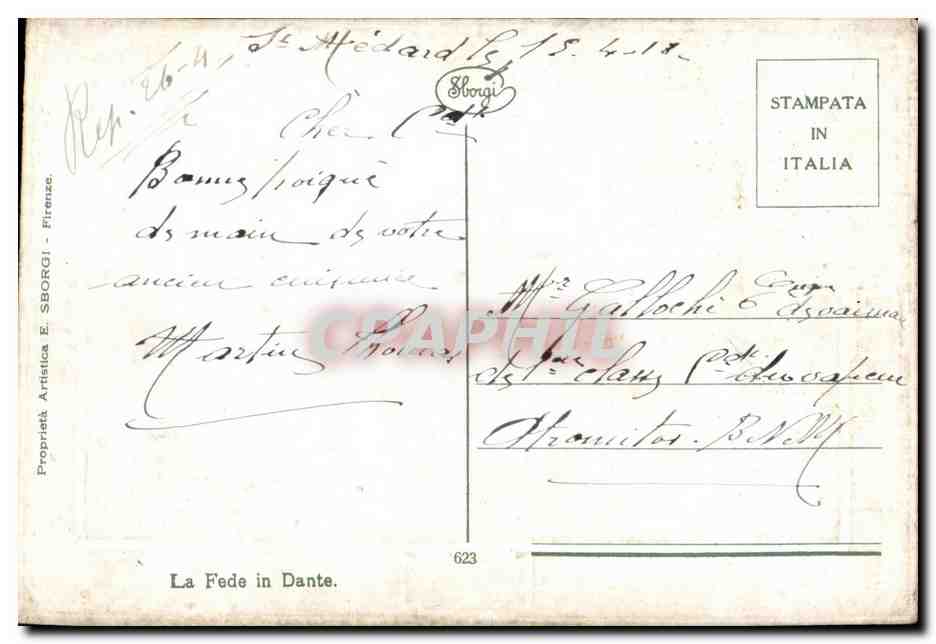 St Médard le 15-4-18-
Rep. 26-4
Sborgi
Cher Cdt
Bonne poigné
de main de votre
ancien
Martin Thomas
Mr Gallochi
de 1ère classe Cdt du vapeur
Stromitos. B.N.M
STAMPATA
IN
ITALIA
Proprietà Artistica E. SBORGI - Firenze.
CPAPHIL
623
La Fede in Dante.